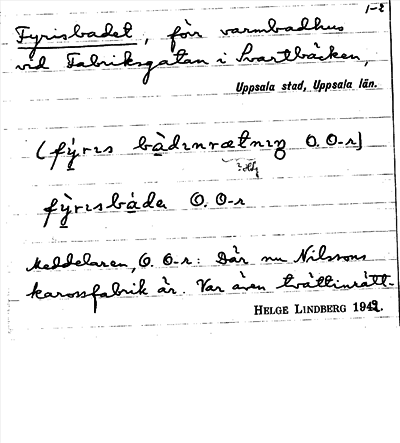 1-2
Fyrisbadet, förr varmbadhus
vid Fabriksgatan i Svartbäcken,
Uppsala stad, Uppsala län.
(fỳ̲rıs ba̲dınrætnıŋ O. O-n)
fỳ̲rısba̲da O. O-n
Meddelaren, O. O-n: Där nu Nilssons
karossfabrik är. Var även tvättinrätt-
HELGE LINDBERG 1942.